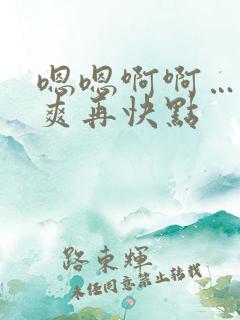 嗯嗯啊啊…
爽再快點
路東輝
未任同意禁止转载